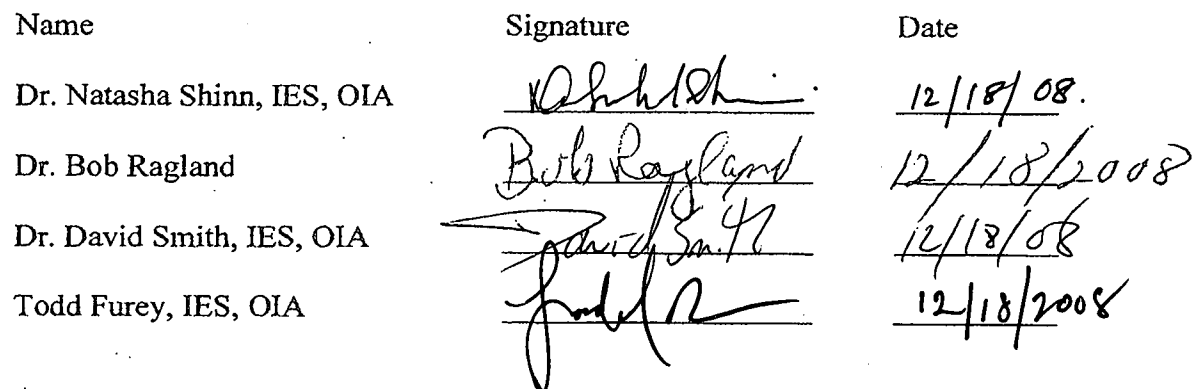 Name Signature Date
Dr. Natasha Shinn, IES, OIA 12/18/08.
Dr. Bob Ragland Bob Ragland 12/18/2008
Dr. David Smith, IES, OIA David Smith 12/18/08
Todd Furey, IES, OIA 12/18/2008